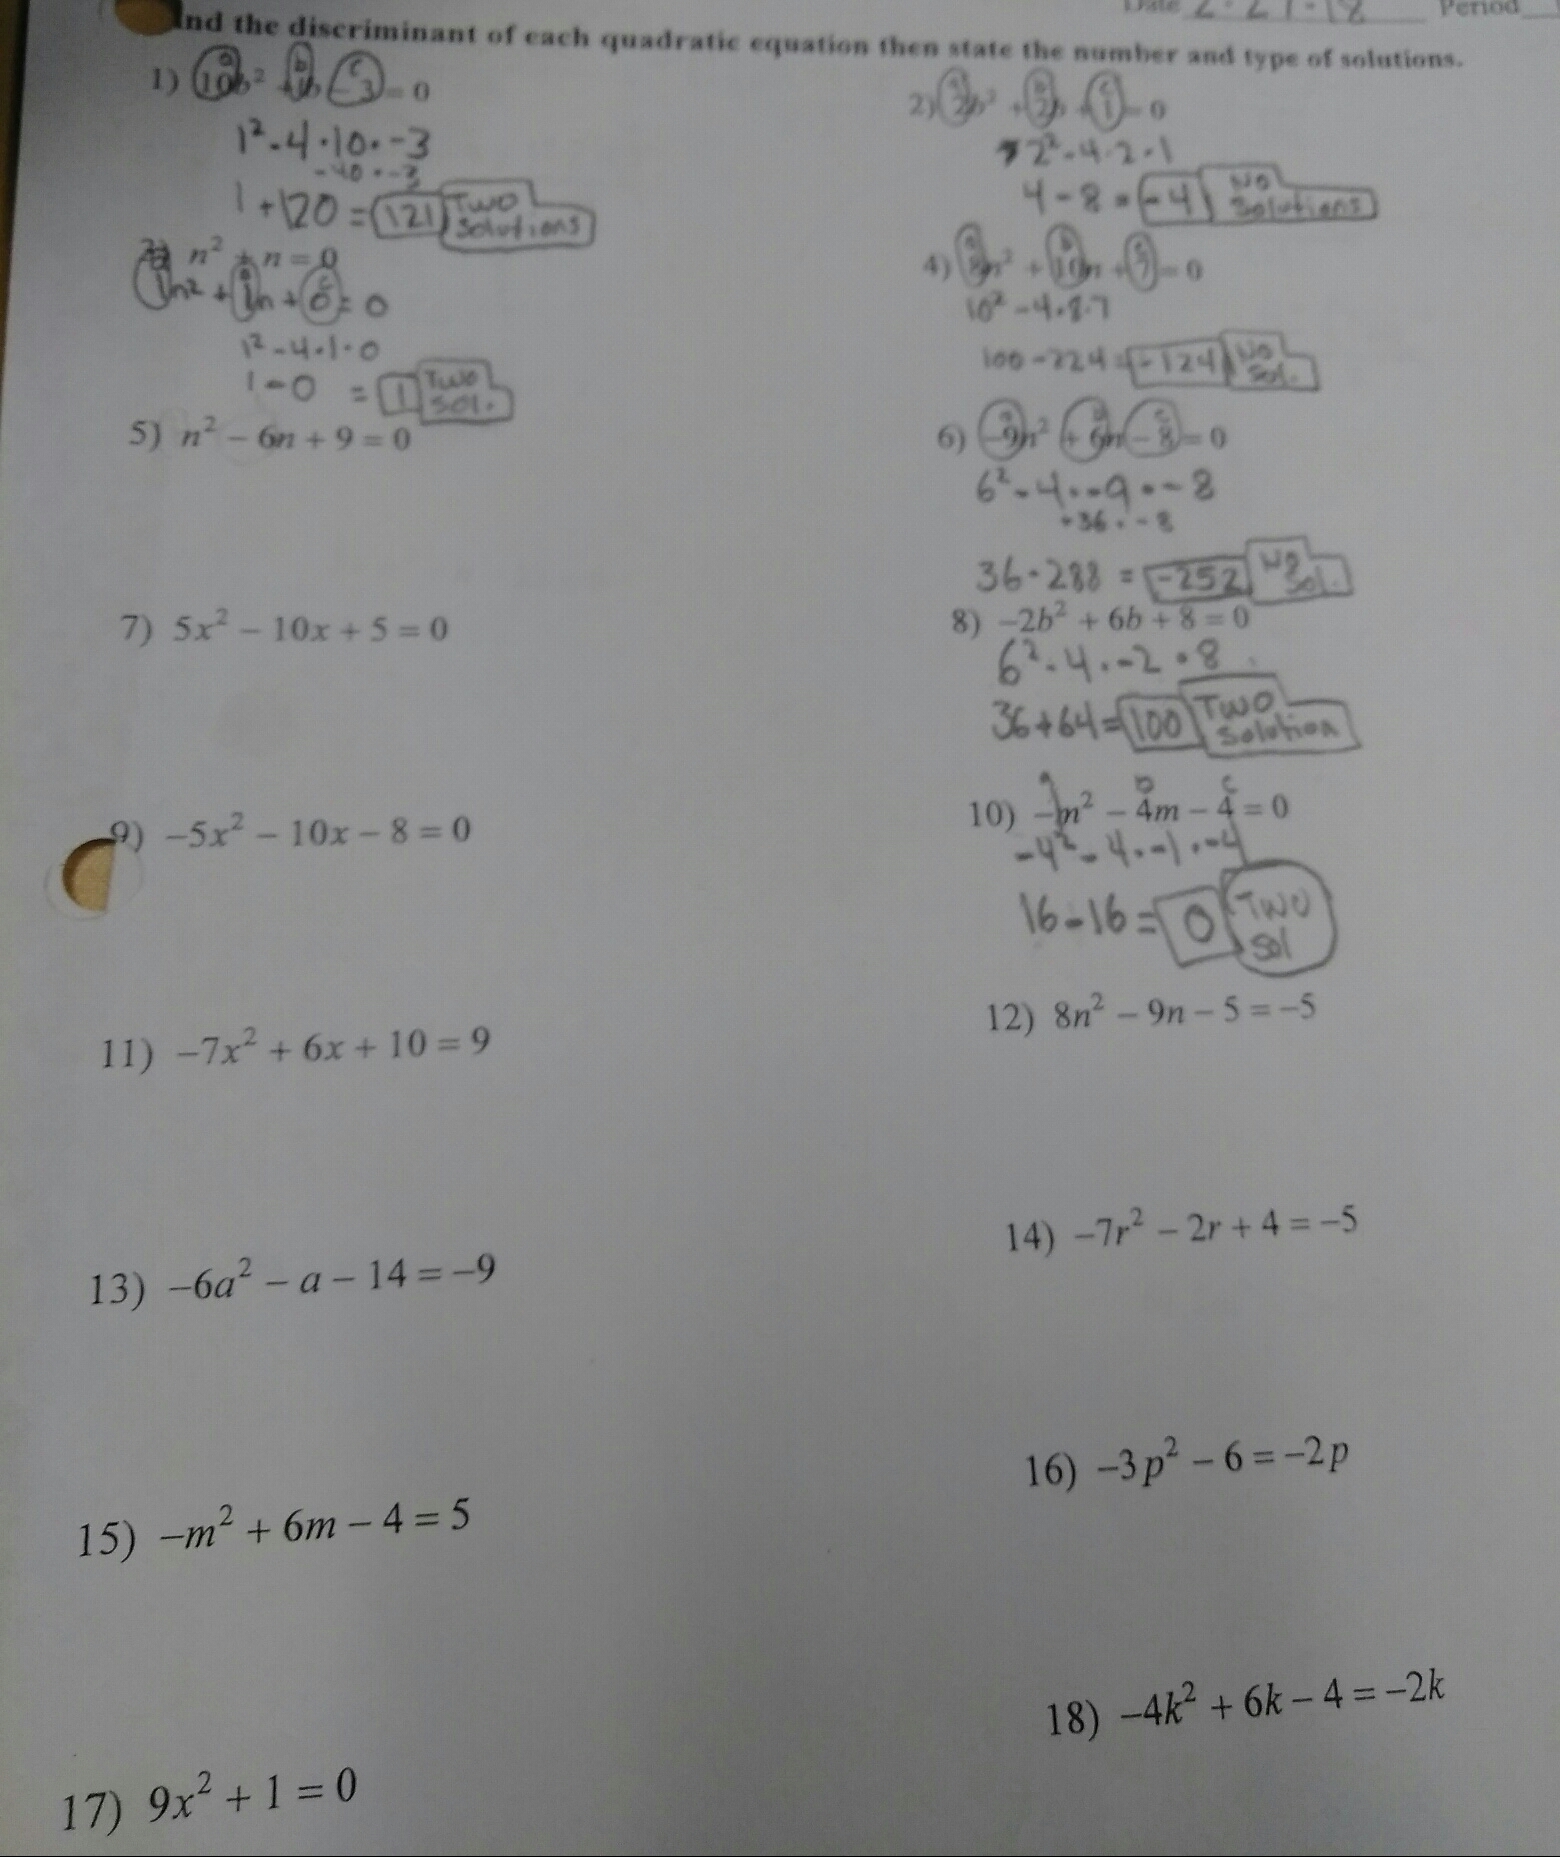 ind the discriminant of each quadratic equation then state the number and type of solutions.
Date 2.27.18 Period
1) 10b² + 1b - 3 = 0
a b c
1² - 4 · 10 · -3
-40 · -3
1 + 120 = 121 Two Solutions
2) 2b² + 2b + 1 = 0
a b c
2² - 4 · 2 · 1
4 - 8 = -4 No Solutions
3) n² + n = 0
1n² + 1n + 0 = 0
1² - 4 · 1 · 0
1 - 0 = 1 Two Sol.
4) 8n² + 10n + 7 = 0
10² - 4 · 8 · 7
100 - 224 = -124 No Sol.
5) n² - 6n + 9 = 0
6) -9n² + 6n - 8 = 0
a b c
6² - 4 · -9 · -8
+36 · -8
36 - 288 = -252 No Sol.
7) 5x² - 10x + 5 = 0
8) -2b² + 6b + 8 = 0
6² - 4 · -2 · 8
36 + 64 = 100 Two Solution
9) -5x² - 10x - 8 = 0
10) -m² - 4m - 4 = 0
a b c
-4² - 4 · -1 · -4
16 - 16 = 0 Two Sol
11) -7x² + 6x + 10 = 9
12) 8n² - 9n - 5 = -5
13) -6a² - a - 14 = -9
14) -7r² - 2r + 4 = -5
15) -m² + 6m - 4 = 5
16) -3p² - 6 = -2p
17) 9x² + 1 = 0
18) -4k² + 6k - 4 = -2k